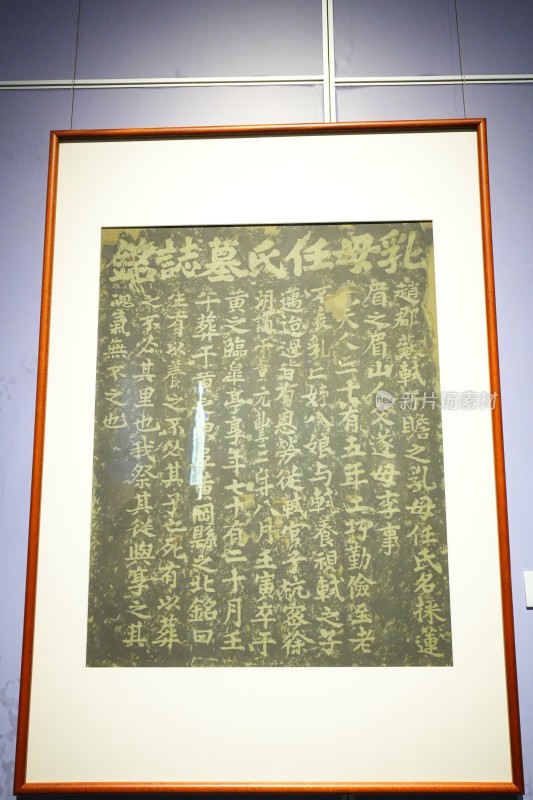 乳母任氏墓誌銘
趙郡蘇軾子瞻之乳母任氏名採蓮
眉之眉山人父遂母李氏事
先夫人卅有五年工巧勤儉至老
不衰乳亡姊八娘与軾養視軾之子
邁迨過皆有恩勞從軾官于杭密徐
湖謫于黃元豐三年八月壬寅卒于
黃之臨皋亭享年七十有二十月壬
午葬于黃之東阜黃岡縣之北銘曰
生有以養之不必其子也死有以葬
之不必其里也我祭其從與享之其
魂氣無不之也
新片场素材